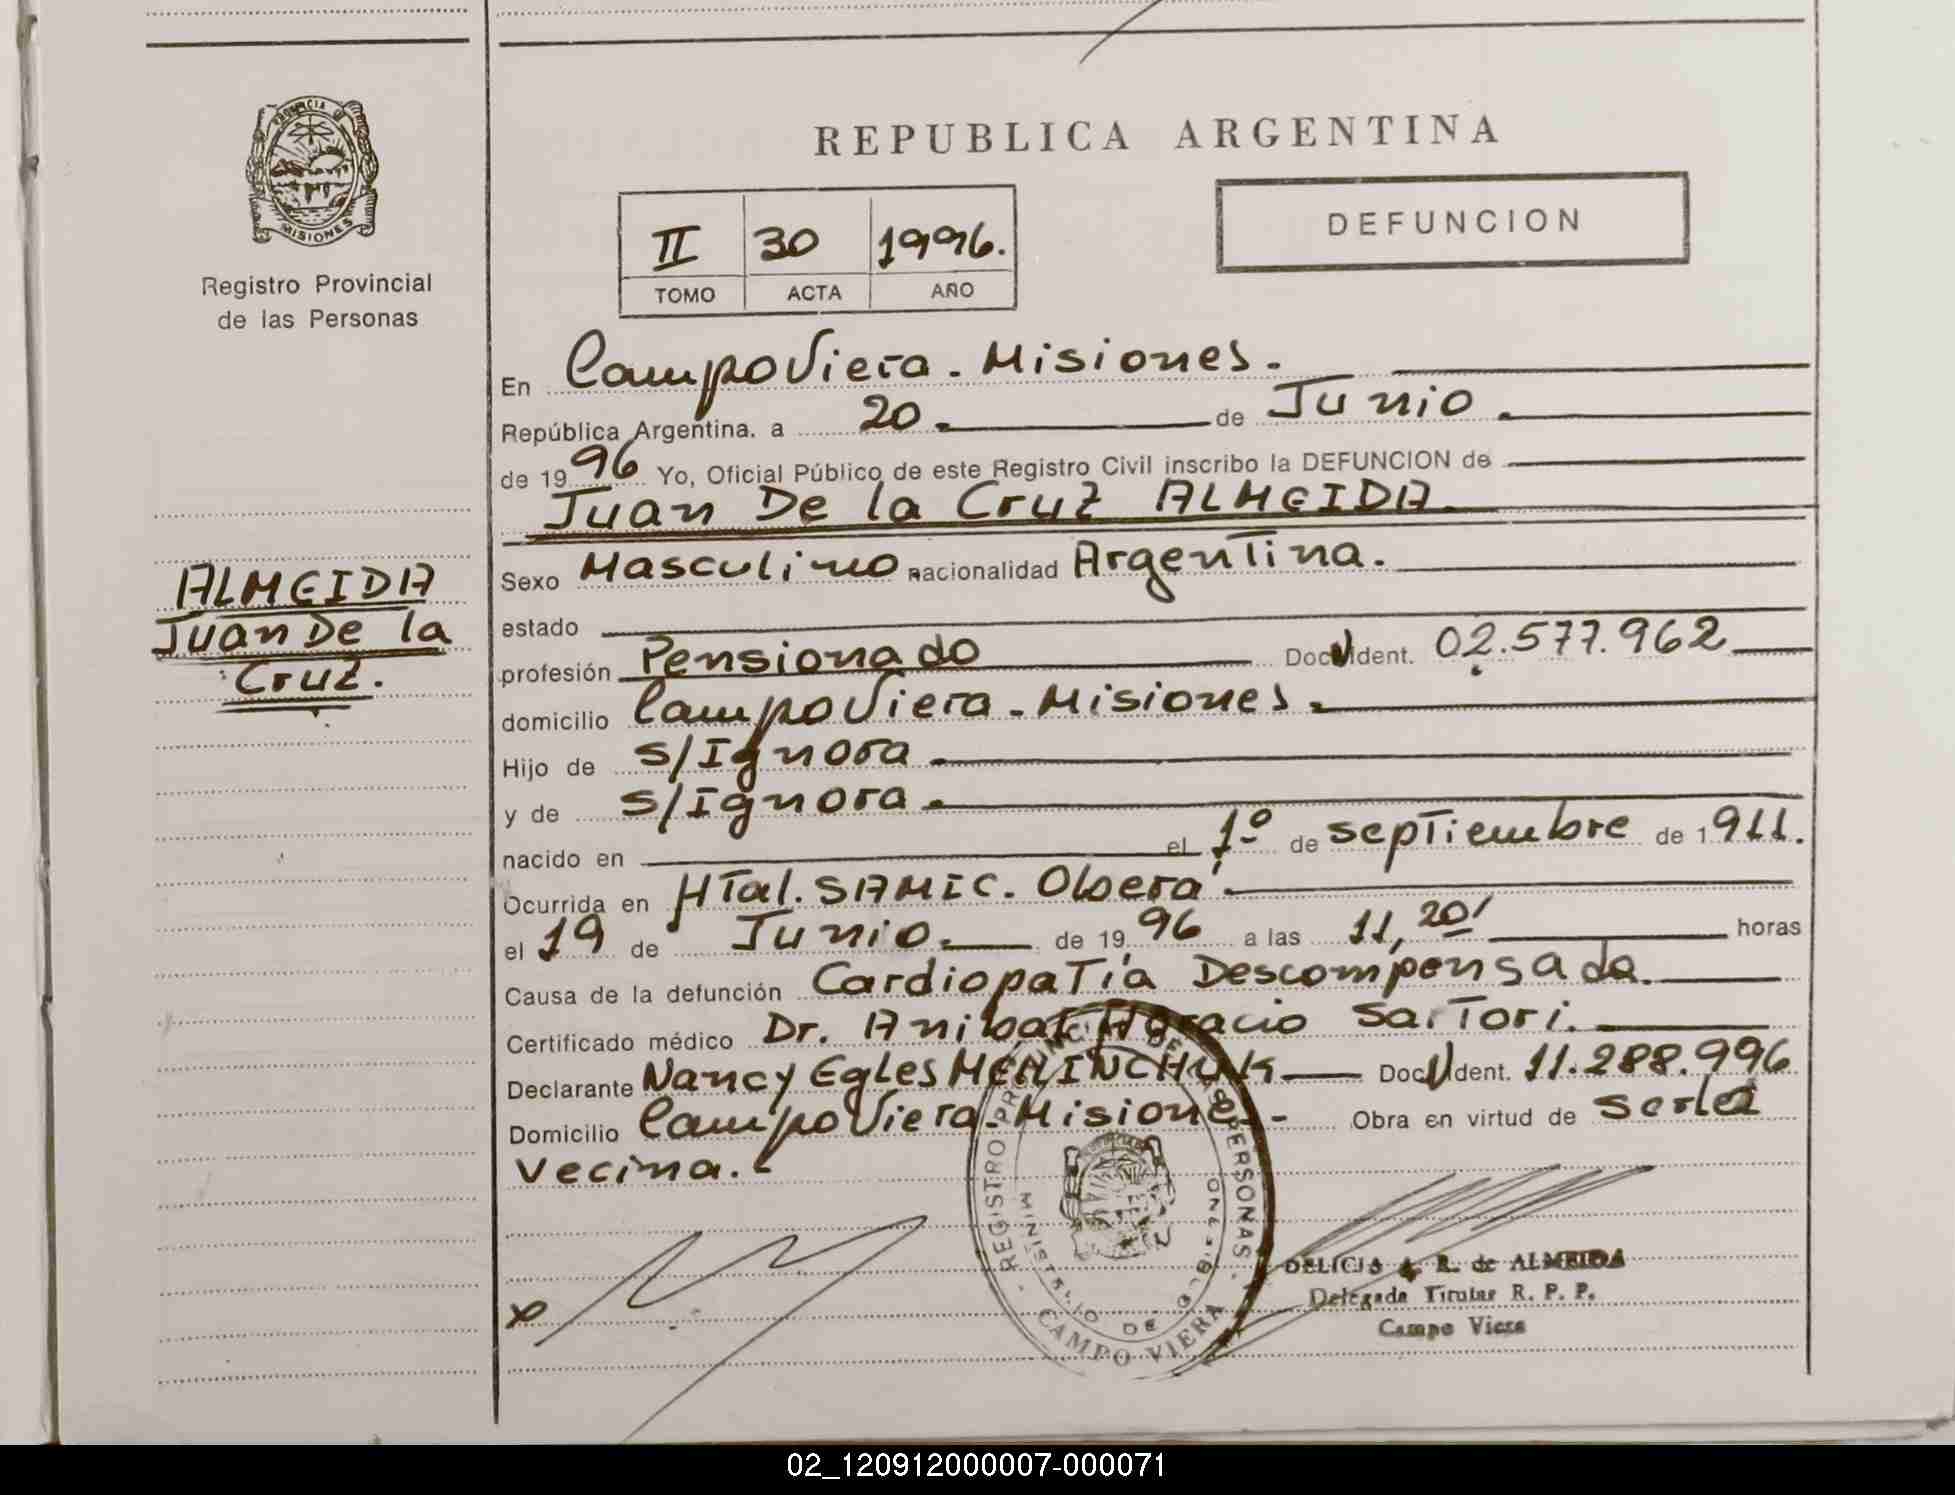 PROVINCIA DE
MISIONES
Registro Provincial
de las Personas
ALMEIDA
Juan De la
Cruz.
REPUBLICA ARGENTINA
II 30 1996.
TOMO ACTA AÑO
DEFUNCION
En Campo Viera - Misiones.
República Argentina, a 20 de Junio
de 1996 Yo, Oficial Público de este Registro Civil inscribo la DEFUNCION de
Juan De la Cruz ALMEIDA.
Sexo Masculino nacionalidad Argentina.
estado
profesión Pensionado Doc. Ident. 02.577.962
domicilio Campo Viera - Misiones.
Hijo de s/Ignora
y de s/Ignora
nacido en el 1º de septiembre de 1911.
Ocurrida en HTal. SAMIC. Oberá.
el 19 de Junio. de 1996 a las 11,20' horas
Causa de la defunción Cardiopatía Descompensada.
Certificado médico Dr. Anibal Horacio Sartori.
Declarante Nancy Egles MEHINCHUK Doc. Ident. 11.288.996
Domicilio Campo Viera - Misiones - Obra en virtud de ser la
vecina.
REGISTRO PROVINCIAL DE LAS PERSONAS
MINISTERIO DE
CAMPO VIERA
DELICIA A. R. de ALMEIDA
Delegada Titular R. P. P.
Campo Viera
02_120912000007-000071